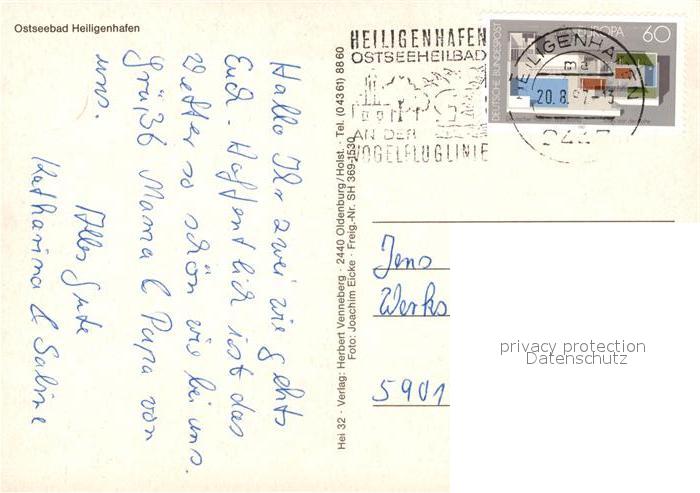 Ostseebad Heiligenhafen
Hallo Ihr zwei wie gehts
Euch. Hoffentlich ist das
Wetter so schön wie bei uns.
Grüßt Mama & Papa von
uns.
Alles Gute
Katharina & Sabine
Hei 32 · Verlag: Herbert Venneberg · 2440 Oldenburg/Holst. · Tel. (04361) 8860
Foto: Joachim Eicke · Freig.-Nr. SH 369-1530
HEILIGENHAFEN
OSTSEEHEILBAD
AN DER
VOGELFLUGLINIE
DEUTSCHE BUNDESPOST
EUROPA 60
HEILIGENHAFEN
20.8.87-13
Jens
Werks
5901
privacy protection
Datenschutz